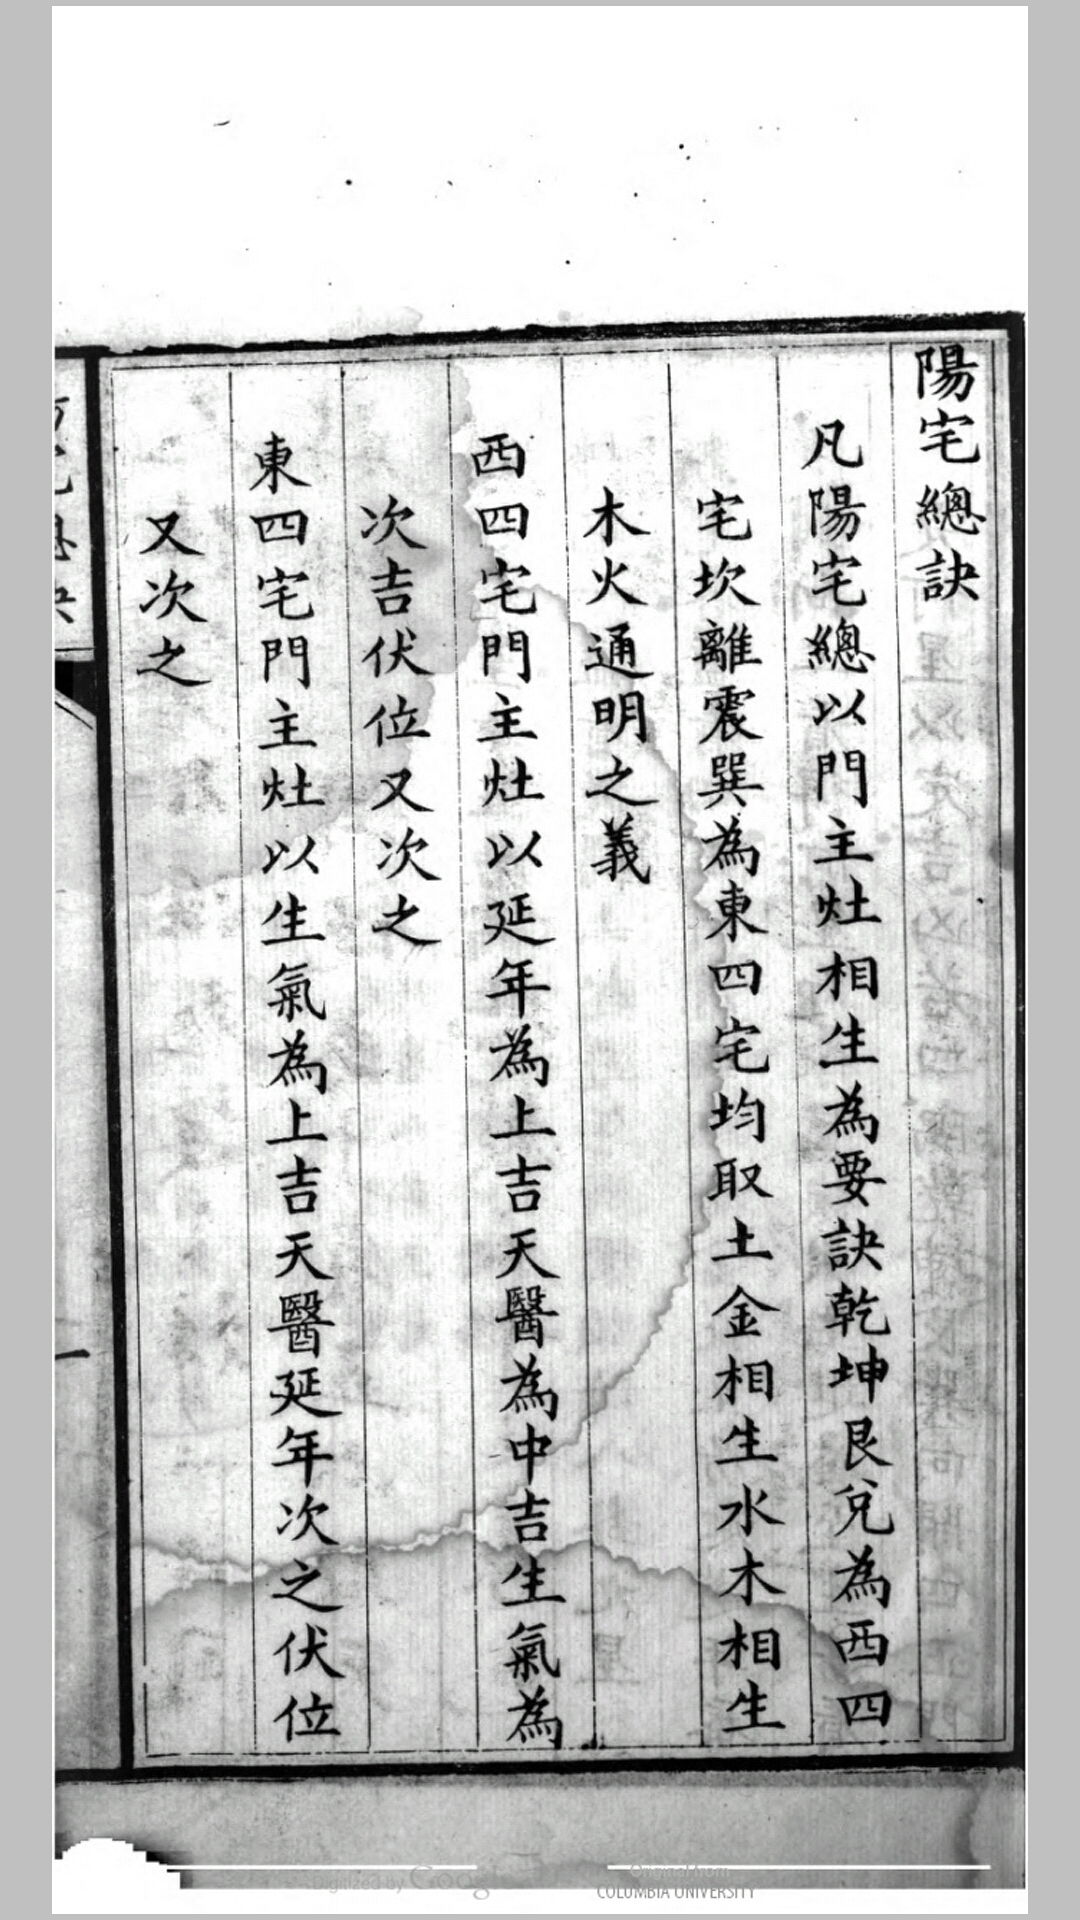 陽宅總訣
凡陽宅總以門主灶相生為要訣乾坤艮兌為西四
宅坎離震巽為東四宅均取土金相生水木相生
木火通明之義
西四宅門主灶以延年為上吉天醫為中吉生氣為
次吉伏位又次之
東四宅門主灶以生氣為上吉天醫延年次之伏位
又次之
一
Digitized by Google
Original from
COLUMBIA UNIVERSITY